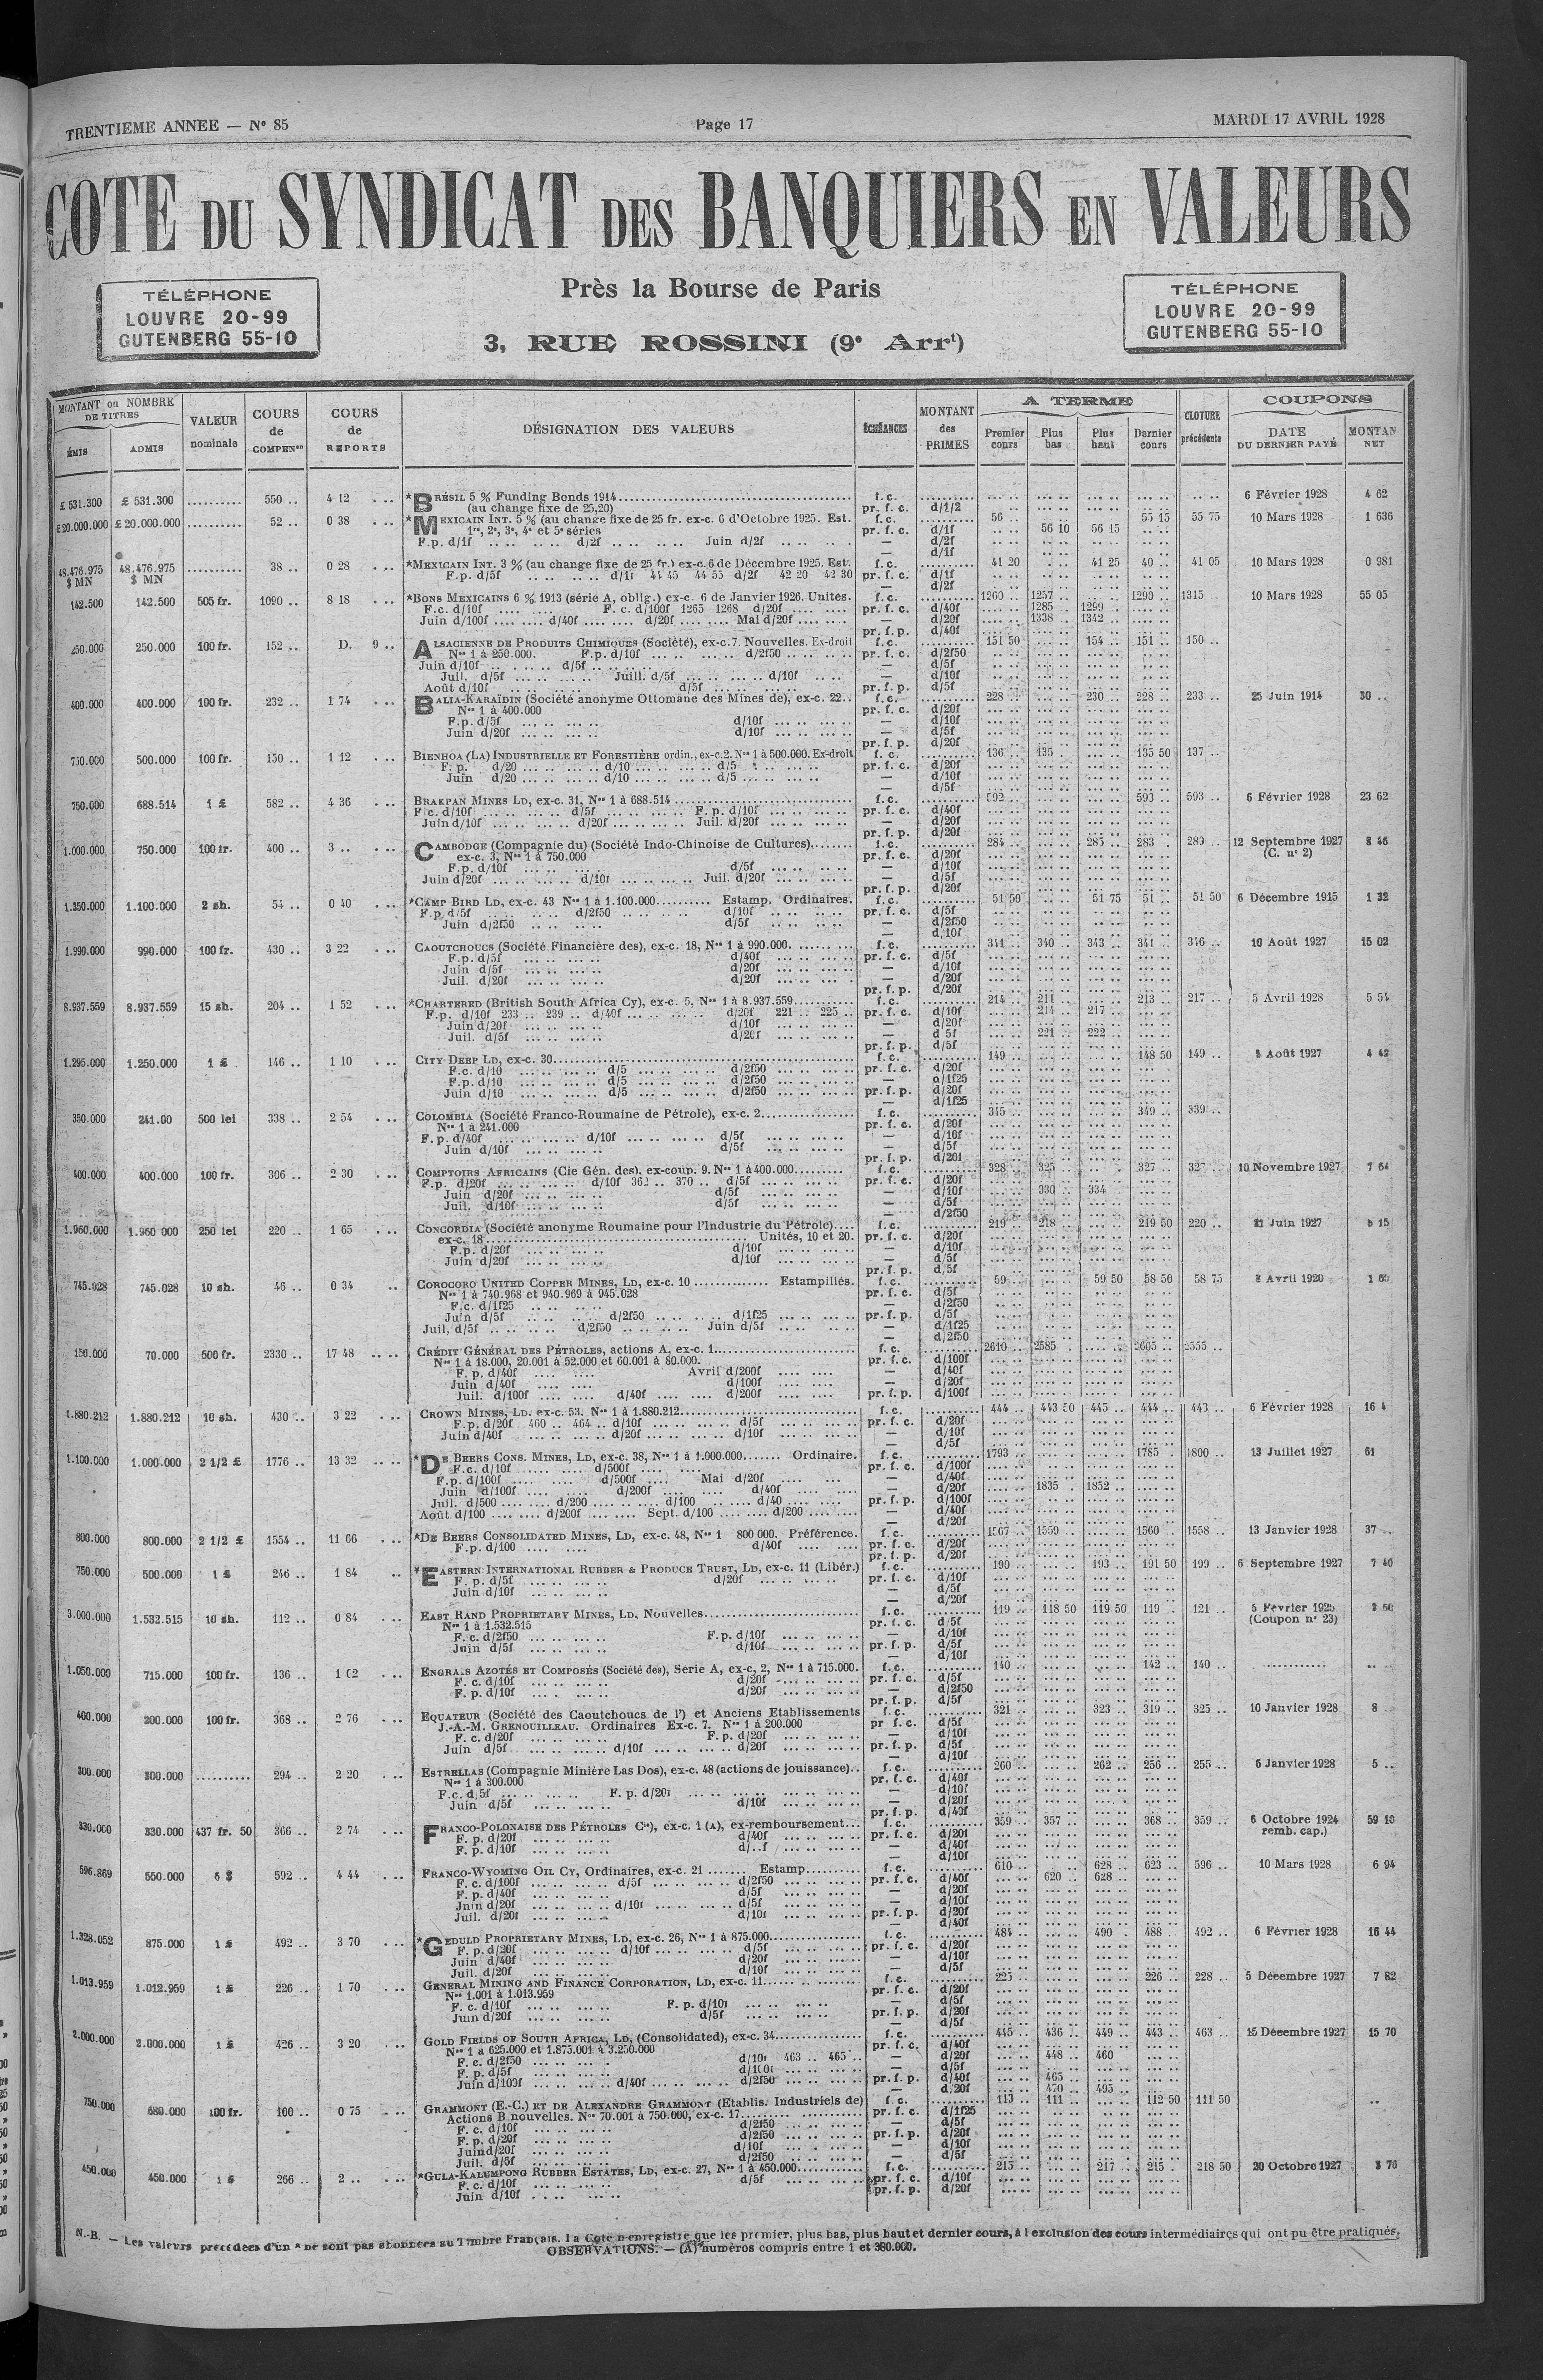 TRENTIEME ANNEE — N° 85
Page 17
MARDI 17 AVRIL 1928
COTE DU SYNDICAT DES BANQUIERS EN VALEURS
Près la Bourse de Paris
3, RUE ROSSINI (9e Arrt)
TÉLÉPHONE
LOUVRE 20-99
GUTENBERG 55-10
TÉLÉPHONE
LOUVRE 20-99
GUTENBERG 55-10
MONTANT ou NOMBRE DE TITRES
ÉMIS ADMIS
VALEUR nominale
COURS de COMPENon
COURS de REPORTS
DÉSIGNATION DES VALEURS
ÉCHÉANCES
MONTANT des PRIMES
A TERME
Premier cours Plus bas Plus haut Dernier cours
CLOTURE précédente
COUPONS
DATE DU DERNIER PAYÉ MONTAN NET
£ 531.300 £ 531.300 .......... 550 .. 4 12 *BRÉSIL 5 % Funding Bonds 1914 f.c. 6 Février 1928 4 62
(au change fixe de 25,20) pr. f. c. d/1/2
£ 20.000.000 £ 20.000.000 .......... 52 .. 0 38 *MEXICAIN INT. 5 % (au change fixe de 25 fr. ex-c. 6 d'Octobre 1925. Est. f.c. 56 .. 55 15 55 75 10 Mars 1928 1 636
1re, 2e, 3e, 4e et 5e séries pr. f. c. d/1f 56 10 56 15
F.p. d/1f d/2f Juin d/2f — d/2f
— d/1f
48.476.975 $ MN 48.476.975 $ MN .......... 38 .. 0 28 *MEXICAIN INT. 3 % (au change fixe de 25 fr.) ex-c. 6 de Décembre 1925. Est. f.c. 41 20 41 25 40 .. 41 05 10 Mars 1928 0 981
F.p. d/5f d/1f 44 45 44 55 d/2f 42 20 42 30 pr. f. c. d/1f
— d/2f
142.500 142.500 505 fr. 1090 .. 8 18 *BONS MEXICAINS 6 % 1913 (série A, oblig.) ex-c. 6 de Janvier 1926. Unités. f.c. 1260 .. 1257 .. 1290 .. 1315 10 Mars 1928 55 05
F.c. d/10f F. c. d/100f 1265 1268 d/20f pr. f. c. d/40f 1285 1299
Juin d/100f d/40f d/20f Mai d/20f — d/20f 1338 1342
pr. f. p. d/40f
250.000 100 fr. 152 .. D. 9 .. ALSACIENNE DE PRODUITS CHIMIQUES (Société), ex-c. 7. Nouvelles. Ex-droit f.c. 151 50 154 .. 151 .. 150 ..
Nos 1 à 250.000. F.p. d/10f d/2f50 pr. f. c. d/2f50
Juin d/10f d/5f — d/5f
Juil. d/5f Juill. d/5f d/10f — d/10f
Août d/10f d/5f pr. f. p. d/5f
400.000 400.000 100 fr. 232 .. 1 74 BALIA-KARAÏDIN (Société anonyme Ottomane des Mines de), ex-c. 22.. f.c. 228 .. 230 .. 228 .. 233 .. 25 Juin 1914 30 ..
Nos 1 à 400.000 pr. f. c. d/20f
F.p. d/5f d/10f — d/10f
Juin d/20f d/10f — d/5f
pr. f. p. d/20f
750.000 500.000 100 fr. 150 .. 1 12 BIENHOA (LA) INDUSTRIELLE ET FORESTIÈRE ordin., ex-c. 2. Nos 1 à 500.000. Ex-droit f.c. 136 .. 135 .. 135 50 137 ..
F. p. d/20 d/10 d/5 pr. f. c. d/20f
Juin d/20 d/10 d/5 — d/10f
— d/5f
750.000 688.514 1 £ 582 .. 4 36 BRAKPAN MINES LD, ex-c. 31, Nos 1 à 688.514 f.c. 592 .. 593 .. 593 .. 6 Février 1928 23 62
F.c. d/10f d/5f F. p. d/10f pr. f. c. d/40f
Juin d/10f d/20f Juil. d/20f — d/20f
pr. f. p. d/20f
1.000.000 750.000 100 fr. 400 .. 3 .. CAMBODGE (Compagnie du) (Société Indo-Chinoise de Cultures). f.c. 284 .. 285 283 . 289 .. 12 Septembre 1927 8 46
ex-c. 3, Nos 1 à 750.000 pr. f. c. d/20f (C. n° 2)
F.p. d/10f d/5f — d/10f
Juin d/20f d/10f Juil. d/20f — d/5f
pr. f. p. d/20f
1.350.000 1.100.000 2 sh. 54 .. 0 40 *CAMP BIRD LD, ex-c. 43 Nos 1 à 1.100.000 Estamp. Ordinaires. f.c. 51 50 51 75 51 .. 51 50 6 Décembre 1915 1 32
F.p. d/5f d/2f50 d/10f pr. f. c. d/5f
Juin d/2f50 d/5f — d/2f50
— d/10f
1.990.000 990.000 100 fr. 430 .. 3 22 CAOUTCHOUCS (Société Financière des), ex-c. 18, Nos 1 à 990.000. f.c. 341 .. 340 .. 343 .. 341 .. 346 .. 10 Août 1927 15 02
F.p. d/5f d/40f pr. f. c. d/5f
Juin d/5f d/20f — d/10f
Juil. d/20f d/20f — d/20f
pr. f. p. d/20f
8.937.559 8.937.559 15 sh. 204 .. 1 52 *CHARTERED (British South Africa Cy), ex-c. 5, Nos 1 à 8.937.559 f.c. 214 .. 211 .. 213 .. 217 .. 5 Avril 1928 5 54
F.p. d/10f 233 .. 239 .. d/40f d/20f 221 .. 225 .. pr. f. c. d/10f 214 .. 217 ..
Juin d/20f d/10f — d/20f
Juil. d/5f d/20f — d 5f 221 .. 222 ..
pr. f. p. d/5f
1.295.000 1.250.000 1 £ 146 .. 1 10 CITY DEEP LD, ex-c. 30 f.c. 149 .. 148 50 149 .. 5 Août 1927 4 42
F.c. d/10 d/5 d/2f50 pr. f. c. d/20f
F.p. d/10 d/5 d/2f50 — d/1f25
Juin d/10 d/5 d/2f50 pr. f. p. d/20f
— d/1f25
350.000 241.00 500 lei 338 .. 2 54 COLOMBIA (Société Franco-Roumaine de Pétrole), ex-c. 2 f.c. 345 .. 349 .. 339 ..
Nos 1 à 241.000 pr. f. c. d/20f
F.p. d/40f d/10f d/5f — d/10f
Juin d/10f d/5f — d/5f
pr. f. p. d/20f
400.000 400.000 100 fr. 306 .. 2 30 COMPTOIRS AFRICAINS (Cie Gén. des), ex-coup. 9. Nos 1 à 400.000 f.c. 328 .. 325 .. 327 .. 327 .. 10 Novembre 1927 7 64
F.p. d/20f d/10f 362 .. 370 .. d/5f pr. f. c. d/20f
Juin d/20f d/5f — d/10f 330 .. 334
Juil. d/10f d/5f — d/5f
— d/2f50
1.960.000 1.960 000 250 lei 220 .. 1 65 CONCORDIA (Société anonyme Roumaine pour l'Industrie du Pétrole) f.c. 219 .. 218 .. 219 50 220 .. 21 Juin 1927 15
ex-c. 18 Unités, 10 et 20. pr. f. c. d/20f
F.p. d/20f d/10f — d/10f
Juin d/20f d/10f — d/5f
pr. f. p. d/5f
745.028 745.028 10 sh. 46 .. 0 34 COROCORO UNITED COPPER MINES, LD, ex-c. 10 Estampillés. f.c. 59 .. 59 50 58 50 58 75 2 Avril 1920
Nos 1 à 740.968 et 940.969 à 945.028 pr. f. c. d/5f
F.c. d/1f25 — d/2f50
Juin d/5f d/2f50 d/1f25 pr. f. p. d/5f
Juil. d/5f d/2f50 Juin d/5f — d/1f25
— d/2f50
150.000 70.000 500 fr. 2330 .. 17 48 CRÉDIT GÉNÉRAL DES PÉTROLES, actions A, ex-c. 1 f.c. 2610 .. 2585 2605 .. 2555 ..
Nos 1 à 18.000, 20.001 à 52.000 et 60.001 à 80.000. pr. f. c. d/100f
F. p. d/40f Avril d/200f — d/40f
Juin d/40f d/100f — d/20f
Juil. d/100f d/40f d/200f pr. f. p. d/100f
1.880.212 1.880.212 10 sh. 430 .. 3 22 CROWN MINES, LD. ex-c. 53. Nos 1 à 1.880.212 f.c. 444 .. 443 50 445 .. 444 .. 443 .. 6 Février 1928 16 4
F.p. d/20f 460 .. 464 .. d/10f d/5f pr. f. c. d/20f
Juin d/40f d/20f d/10f — d/10f
— d/5f
1.100.000 1.000.000 2 1/2 £ 1776 .. 13 32 *DE BEERS CONS. MINES, LD, ex-c. 38, Nos 1 à 1.000.000 Ordinaire. f.c. 1793 1785 1800 .. 13 Juillet 1927 61
F.c. d/10f d/500f pr. f. c. d/100f
F.p. d/100f d/500f Mai d/20f — d/40f
Juin d/100f d/200f d/40f — d/20f 1835 1852
Juil. d/500 d/200 d/100 d/40 pr. f. p. d/100f
Août d/100 d/200f Sept. d/100 d/200 — d/40f
— d/20f
800.000 800.000 2 1/2 £ 1554 .. 11 66 *DE BEERS CONSOLIDATED MINES, LD, ex-c. 48, Nos 1 800 000. Préférence. f.c. 1567 .. 1559 1560 1558 .. 13 Janvier 1928 37 ..
F.p. d/100 d/40f pr. f. c. d/20f
pr. f. p. d/20f
750.000 500.000 1 £ 246 .. 1 84 *EASTERN INTERNATIONAL RUBBER & PRODUCE TRUST, LD, ex-c. 11 (Libér.) f.c. 190 .. 193 .. 191 50 199 .. 6 Septembre 1927 7 46
F. p. d/5f d/20f pr. f. c. d/10f
Juin d/10f — d/5f
— d/20f
3.000.000 1.532.515 10 sh. 112 .. 0 84 EAST RAND PROPRIETARY MINES, LD, Nouvelles f.c. 119 .. 118 50 119 50 119 . 121 .. 5 Février 1925 60
Nos 1 à 1.532.515 pr. f. c. d/5f (Coupon n° 23)
F. c. d/2f50 F.p. d/10f — d/10f
Juin d/5f d/10f pr. f. p. d/5f
— d/10f
1.050.000 715.000 100 fr. 136 .. 1 02 ENGRAIS AZOTÉS ET COMPOSÉS (Société des), Série A, ex-c, 2, Nos 1 à 715.000. f.c. 140 .. 142 .. 140 ..
F. c. d/10f d/20f pr. f. c. d/5f
F. p. d/10f d/20f — d/2f50
pr. f. p. d/5f
400.000 200.000 100 fr. 368 .. 2 76 EQUATEUR (Société des Caoutchoucs de l') et Anciens Etablissements f.c. 321 .. 323 .. 319 .. 325 .. 10 Janvier 1928 8 ..
J.-A.-M. GRENOUILLEAU. Ordinaires Ex-c. 7. Nos 1 à 200.000 pr f. c. d/5f
F. c. d/20f F. p. d/20f — d/10f
Juin d/5f d/10f d/20f pr. f. p. d/5f
— d/10f
300.000 300.000 .......... 294 .. 2 20 ESTRELLAS (Compagnie Minière Las Dos), ex-c. 48 (actions de jouissance).. f.c. 260 .. 262 .. 256 .. 255 .. 6 Janvier 1928 5 ..
Nos 1 à 300.000 pr. f. c. d/40f
F.c. d/5f F. p. d/20f — d/10f
Juin d/5f d/10f — d/20f
pr. f. p. d/40f
330.000 330.000 437 fr. 50 366 .. 2 74 FRANCO-POLONAISE DES PÉTROLES Cie), ex-c. 1 (A), ex-remboursement f.c. 359 .. 357 .. 368 .. 359 .. 6 Octobre 1924 59 10
F. p. d/20f d/40f pr. f. c. d/20f remb. cap.)
F. p. d/10f d/..f — d/40f
— d/10f
596.869 550.000 6 $ 592 .. 4 44 FRANCO-WYOMING OIL CY, Ordinaires, ex-c. 21 Estamp. f.c. 610 .. 628 .. 623 .. 596 .. 10 Mars 1928 6 94
F. c. d/100f d/5f d/2f50 pr. f. c. d/40f 620 .. 628 ..
F. p. d/40f d/5f — d/20f
Jnin d/20f d/10f d/5f — d/10f
Juil. d/20f d/10f pr. f. p. d/20f
— d/40f
1.328.052 875.000 1 £ 492 .. 3 70 *GEDULD PROPRIETARY MINES, LD, ex-c. 26, Nos 1 à 875.000 f.c. 484 .. 490 . 488 .. 492 .. 6 Février 1928 16 44
F. p. d/20f d/10f d/5f pr. f. c. d/20f
Juin d/40f d/20f — d/10f
Juil. d/20f d/10f — d/5f
1.013.959 1.012.959 1 £ 226 .. 1 70 GENERAL MINING AND FINANCE CORPORATION, LD, ex-c. 11 f.c. 225 .. 226 .. 228 .. 5 Décembre 1927 7 82
Nos 1.001 à 1.013.959 pr. f. c. d/20f
F. c. d/10f F. p. d/10f — d/5f
Juin d/20f d/5f pr. f. p. d/20f
— d/5f
2.000.000 2.000.000 1 £ 426 .. 3 20 GOLD FIELDS OF SOUTH AFRICA, LD, (Consolidated), ex-c. 34 f.c. 445 .. 436 .. 449 .. 443 .. 463 .. 15 Décembre 1927 15 70
Nos 1 à 625.000 et 1.875.001 à 3.250.000 pr. f. c. d/40f
F. c. d/2f50 d/10f 463 .. 465 .. — d/20f 448 .. 460
F. p. d/5f d/100f — d/5f
Juin d/100f d/40f d/2f50 pr. f. p. d/40f 465 ..
— d/20f 470 .. 495 ..
750.000 680.000 100 fr. 100 .. 0 75 GRAMMONT (E.-C.) ET DE ALEXANDRE GRAMMONT (Etablis. Industriels de) f.c. 113 .. 111 .. 112 50 111 50
Actions B nouvelles. Nos 70.001 à 750.000, ex-c. 17 pr. f. c. d/1f25
F. c. d/10f d/2f50 — d/5f
F. p. d/20f d/2f50 pr. f. p. d/20f
Juin d/20f d/10f — d/10f
Juil. d/5f d/2f50 — d/5f
450.000 450.000 1 £ 266 .. 2 .. *GULA-KALUMPONG RUBBER ESTATES, LD, ex-c. 27, Nos 1 à 450.000 f.c. 215 .. 217 .. 215 .. 218 50 20 Octobre 1927 3 76
F. c. d/10f d/5f pr. f. c. d/10f
Juin d/10f pr. f. p. d/20f
N.-B. — Les valeurs précédées d'un * ne sont pas abonnées au Timbre Français. La Cote n'enregistre que les premier, plus bas, plus haut et dernier cours, à l'exclusion des cours intermédiaires qui ont pu être pratiqués.
OBSERVATIONS. — (A) numéros compris entre 1 et 380.000.